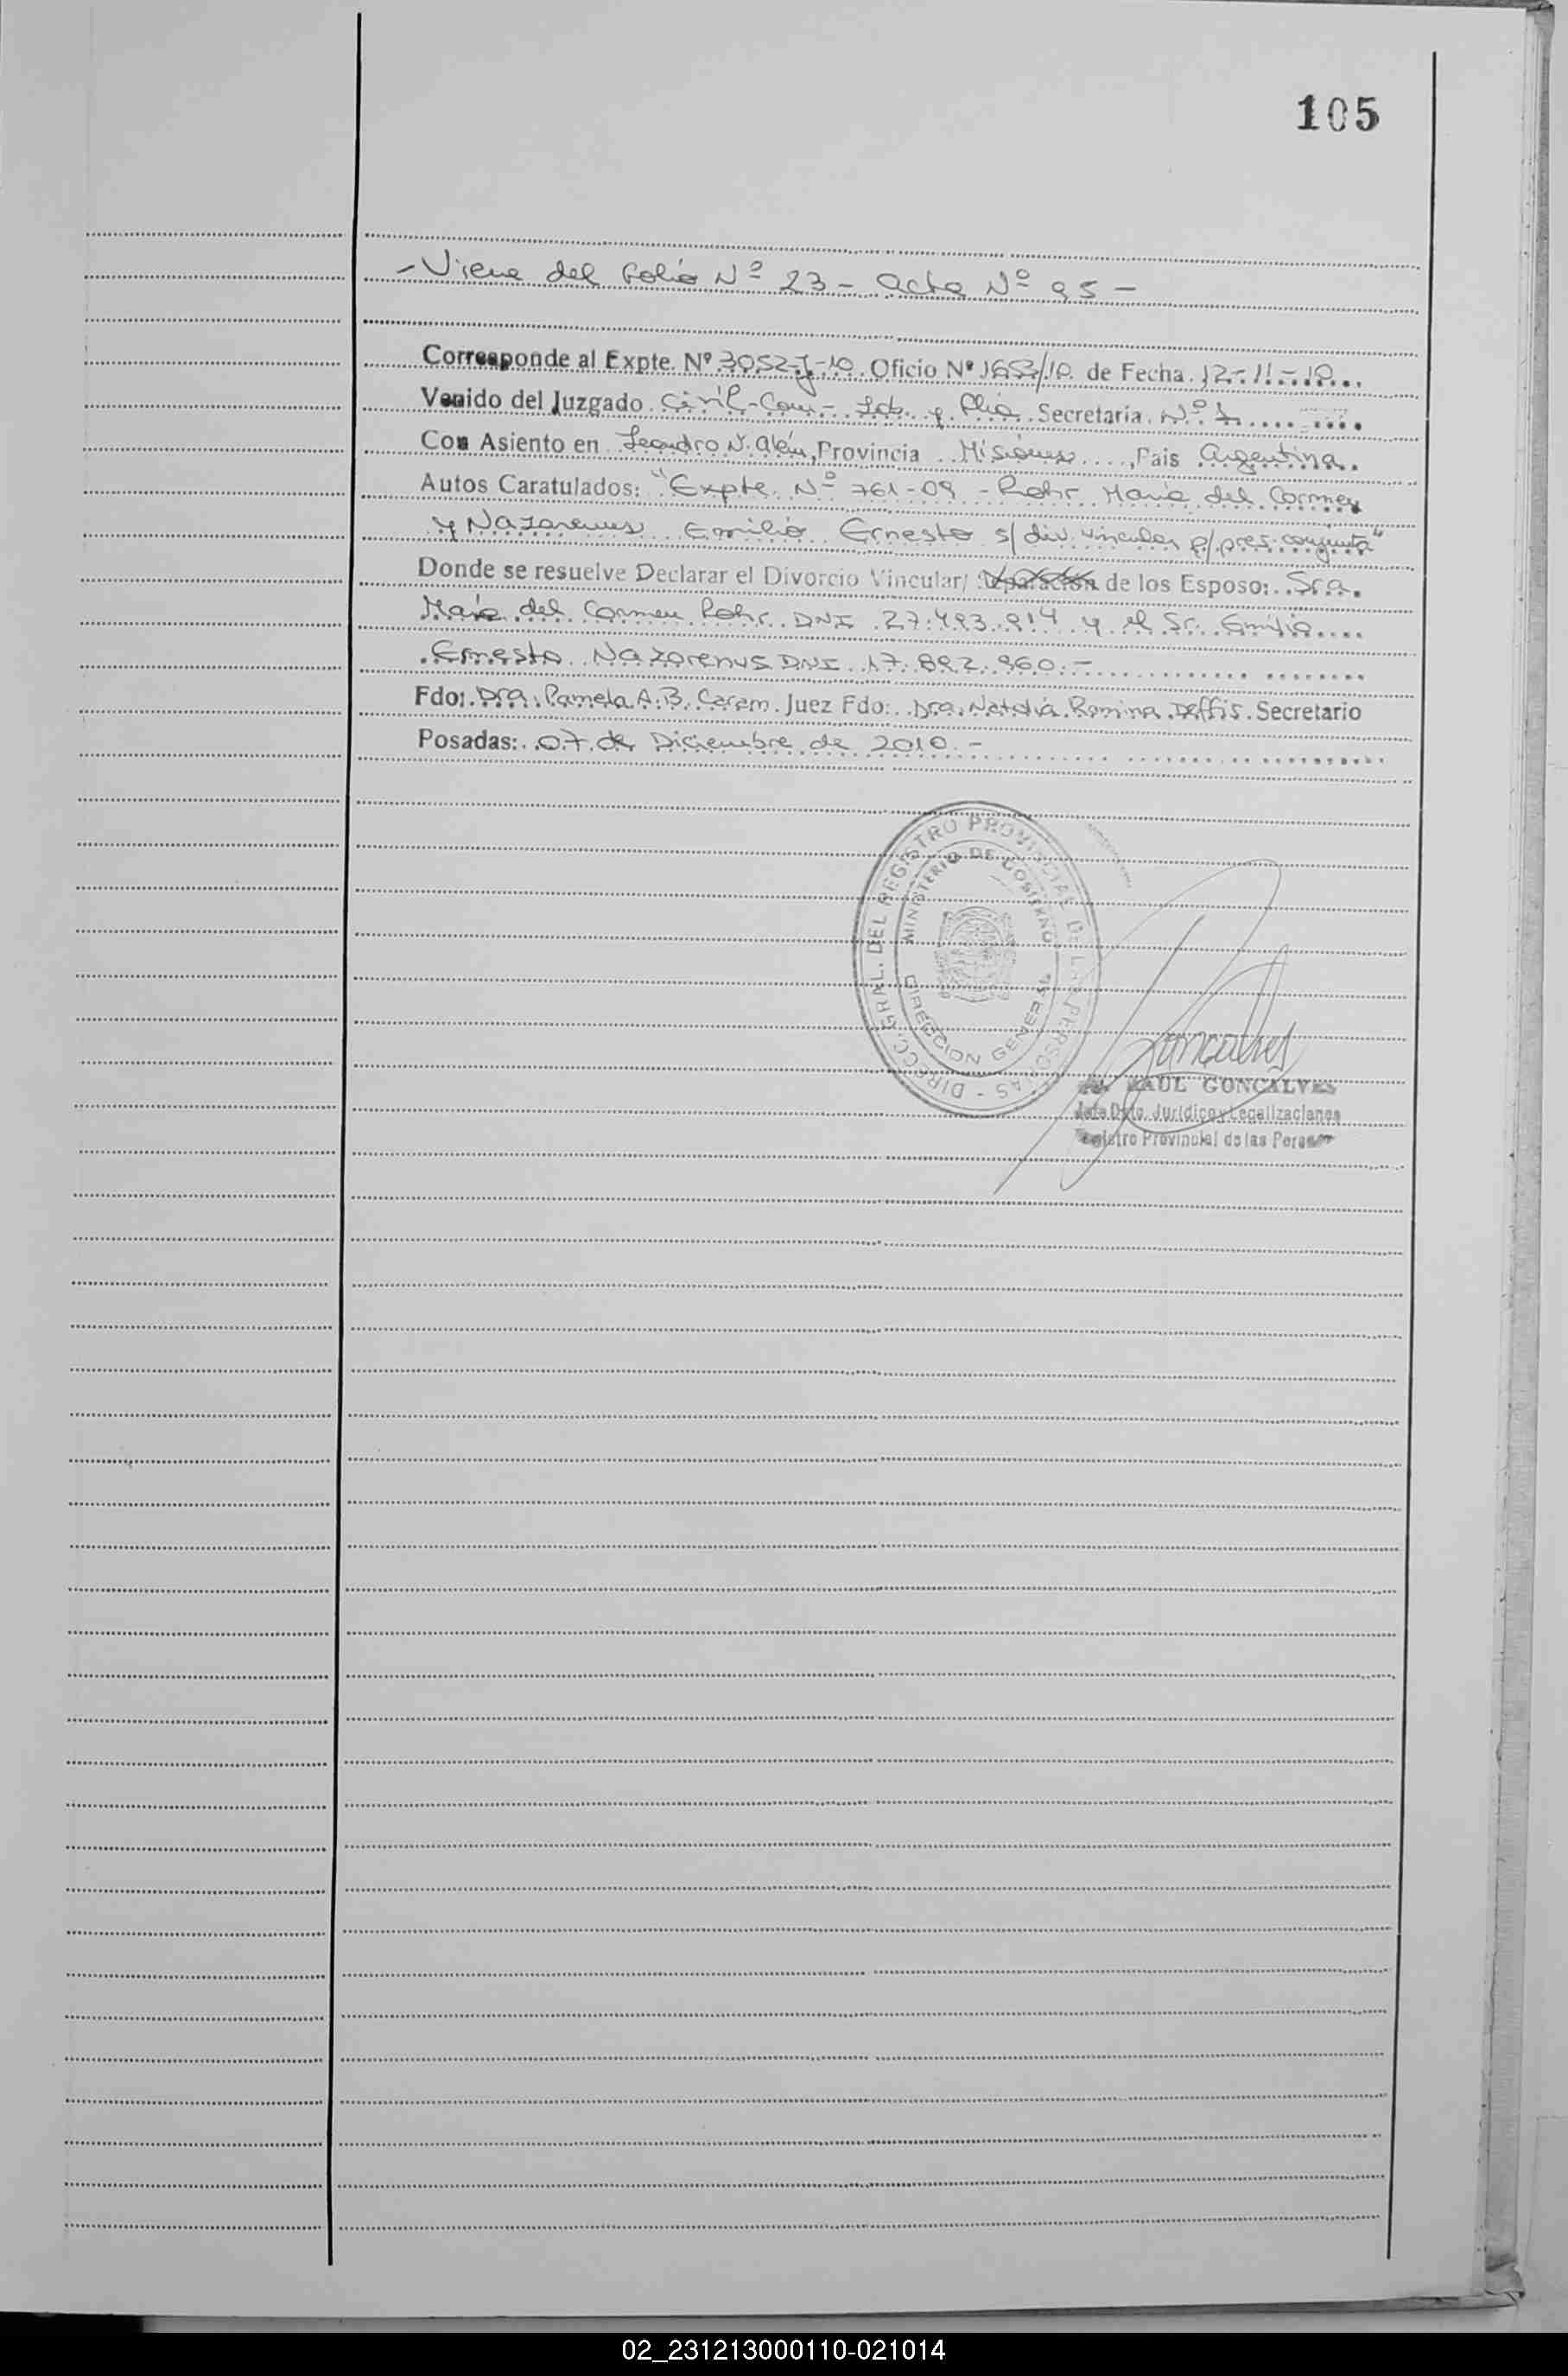 105
- Viene del Folio Nº 23 - Acta Nº 95 -
Corresponde al Expte. Nº 3052-J-10. Oficio Nº 1653/10 de Fecha 12-11-10
Venido del Juzgado Civil-Com- Lab. y Flia. Secretaría. Nº 1
Con Asiento en Leandro N. Alem, Provincia Misiones, Pais Argentina.
Autos Caratulados: "Expte. Nº 761-09 - Rohr María del Carmen
y Nazarenus Emilio Ernesto s/ div. vincular p/ pres. conjunta"
Donde se resuelve Declarar el Divorcio Vincular/ Separación de los Esposo: Sra.
María del Carmen Rohr DNI 27.493.914 y el Sr. Emilio
Ernesto Nazarenus DNI 17.892.960.-
Fdo: Dra. Pamela A.B. Caram. Juez Fdo: Dra. Natalia Romina Deffis. Secretario
Posadas: 07 de Diciembre de 2010.-
DIRECC. GRAL. DEL REGISTRO PROVINCIAL DE LAS PERSONAS -
MINISTERIO DE GOBIERNO
DIRECCION GENERAL
RAUL GONCALVES
Jefe Dpto. Jurídico y Legalizaciones
Registro Provincial de las Personas
02_231213000110-021014